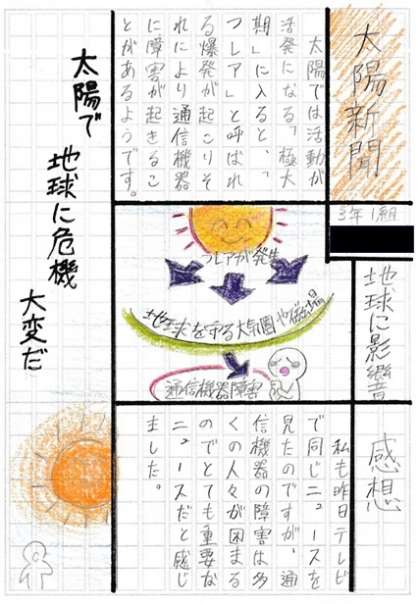 太陽新聞
3年1組
太陽では活動が
活発になる「極大
期」に入ると、「
フレア」と呼ばれ
る爆発が起こりそ
れにより通信機器
に障害が起きるこ
とがあるようです。
地球に影響
フレアが発生
地球を守る大気圏や磁場
通信機器障害
感想
私も昨日テレビ
で同じニュースを
見たのですが、通
信機器の障害は多
くの人々が困まる
のでとても重要な
ニュースだと感じ
ました。
太陽で 地球に危機 大変だ